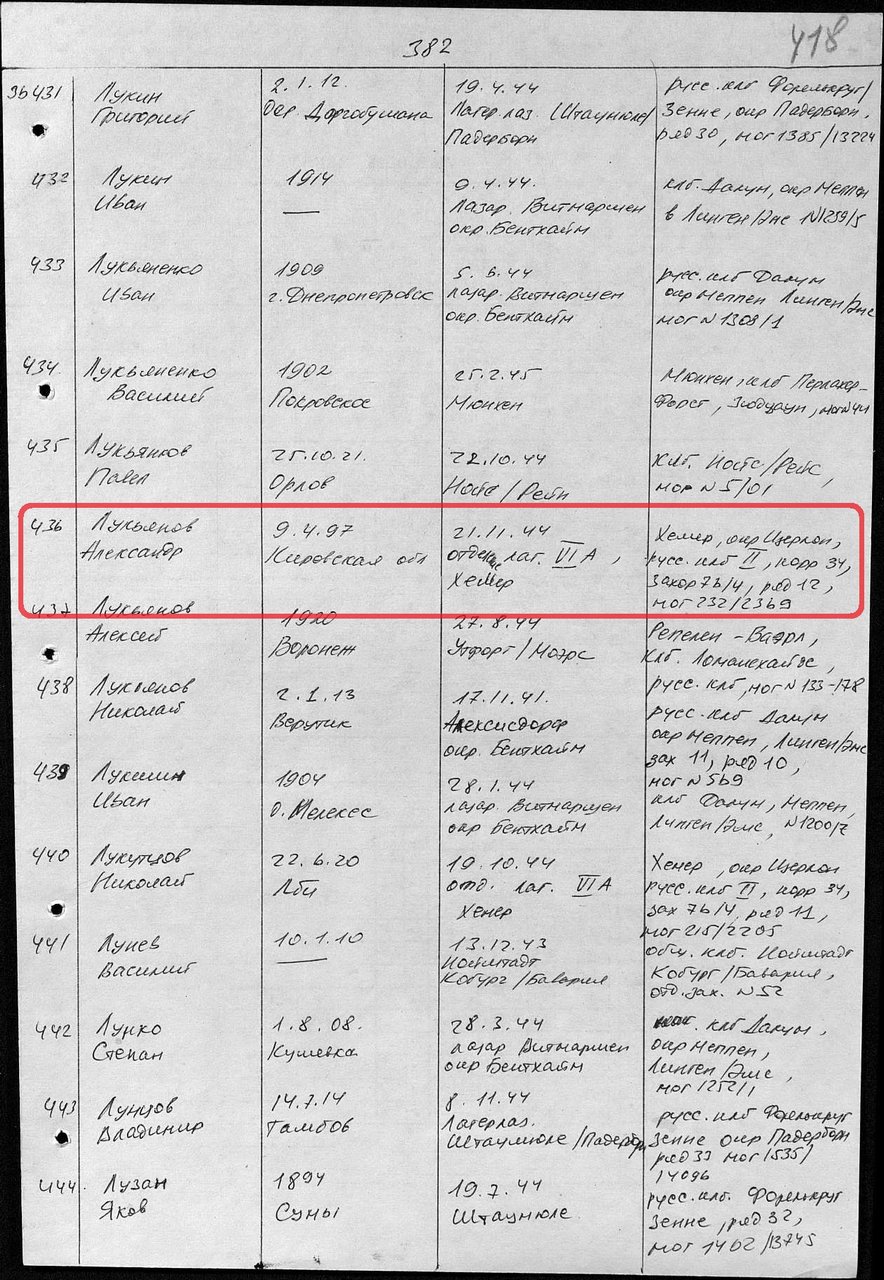 382
418
36431
Лукин
Григорий
2.1.12.
Дер. Доргобушана
19.4.44
Лагер. лаз. Штаумюле/
Падерборн
русс. клб Форелькруг/
Зенне, окр Падерборн,
ряд 30, мог 1385/13224
432
Лукин
Иван
1914
—
9.4.44.
Лазар. Витмаршен
окр. Бентхайм
клб. Далум, окр Меппен
в Линген/Эмс N1239/5
433
Лукьяненко
Иван
1909
г. Днепропетровск
5.6.44
лазар. Витмаршен
окр. Бентхайм
русс. клб Далум
окр Меппен Линген/Эмс
мог N 1308/1
434
Лукьяненко
Василий
1902
Покровское
25.2.45
Мюнхен
Мюнхен, клб Перлахер-
Форст, Зюдцаун, мог N 44
435
Лукьянков
Павел
25.10.21.
Орлов
22.10.44
Нойс/Рейн
Клб. Нойс/Рейс,
мог N 5/01
436
Лукьянов
Александр
9.4.97
Кировская обл
21.11.44
лаг. VI A,
Хемер
Хемер, окр Изерлон,
русс. клб II, корр 34,
захор 7b/4, ряд 12,
мог 232/2369
437
Лукьянов
Алексей
1920
Воронеж
27.8.44
Утфорт/Моэрс
Репелен - Ваэрл,
Клб. Ломансхайде,
русс. клб, мог N 133-178
438
Лукьянов
Николай
2.1.13
Верутик
17.11.41.
Алексисдорф
окр. Бентхайм
русс. клб Далум
окр Меппен, Линген/Эмс
зах 11, ряд 10,
мог N 569
439
Лукишин
Иван
1904
о. Мелекес
28.1.44
лазар. Витмаршен
окр Бентхайм
клб Далум, Меппен,
Линген/Эмс, N1200/2
440
Лукутцов
Николай
22.6.20
Лби
19.10.44
отд. лаг. VI A
Хемер
Хемер, окр Изерлон
русс. клб II, корр 34,
зах 7b/4, ряд 11,
мог 215/2205
441
Лунев
Василий
10.1.10
—
13.12.43
Нойштадт
Кобург/Бавария
общ. клб. Нойштадт
Кобург/Бавария,
отд. зах. N 52
442
Лунко
Степан
1.8.08.
Кущевка
28.3.44
лазар Витмаршен
окр Бентхайм
клб Далум,
окр Меппен,
Линген/Эмс,
мог 1252/1
443
Лунцов
Владимир
14.7.14
Тамбов
8.11.44
Лагерлаз.
Штаумюле/Падерборн
русс. клб Форелькруг
Зенне окр Падерборн
ряд 33 мог 1535/
14096
444.
Лузан
Яков
1894
Сумы
19.7.44
Штаумюле
русс. клб. Форелькруг
Зенне, ряд 32,
мог 1462/13745